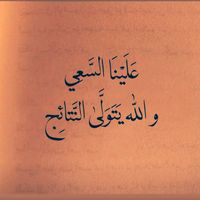 عَلَيْنَا السَّعِي
و الله يَتَوَلَّىٰ النَّتَائِج